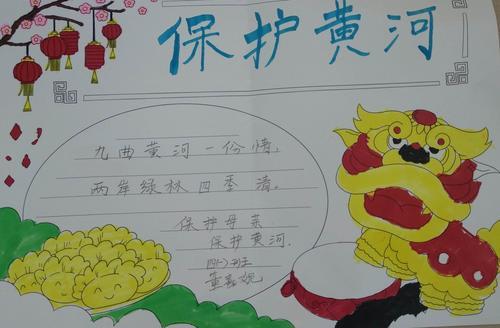 保护黄河
九曲黄河一份情，
两岸绿林四季清。
保护母亲
保护黄河.
四(一)班